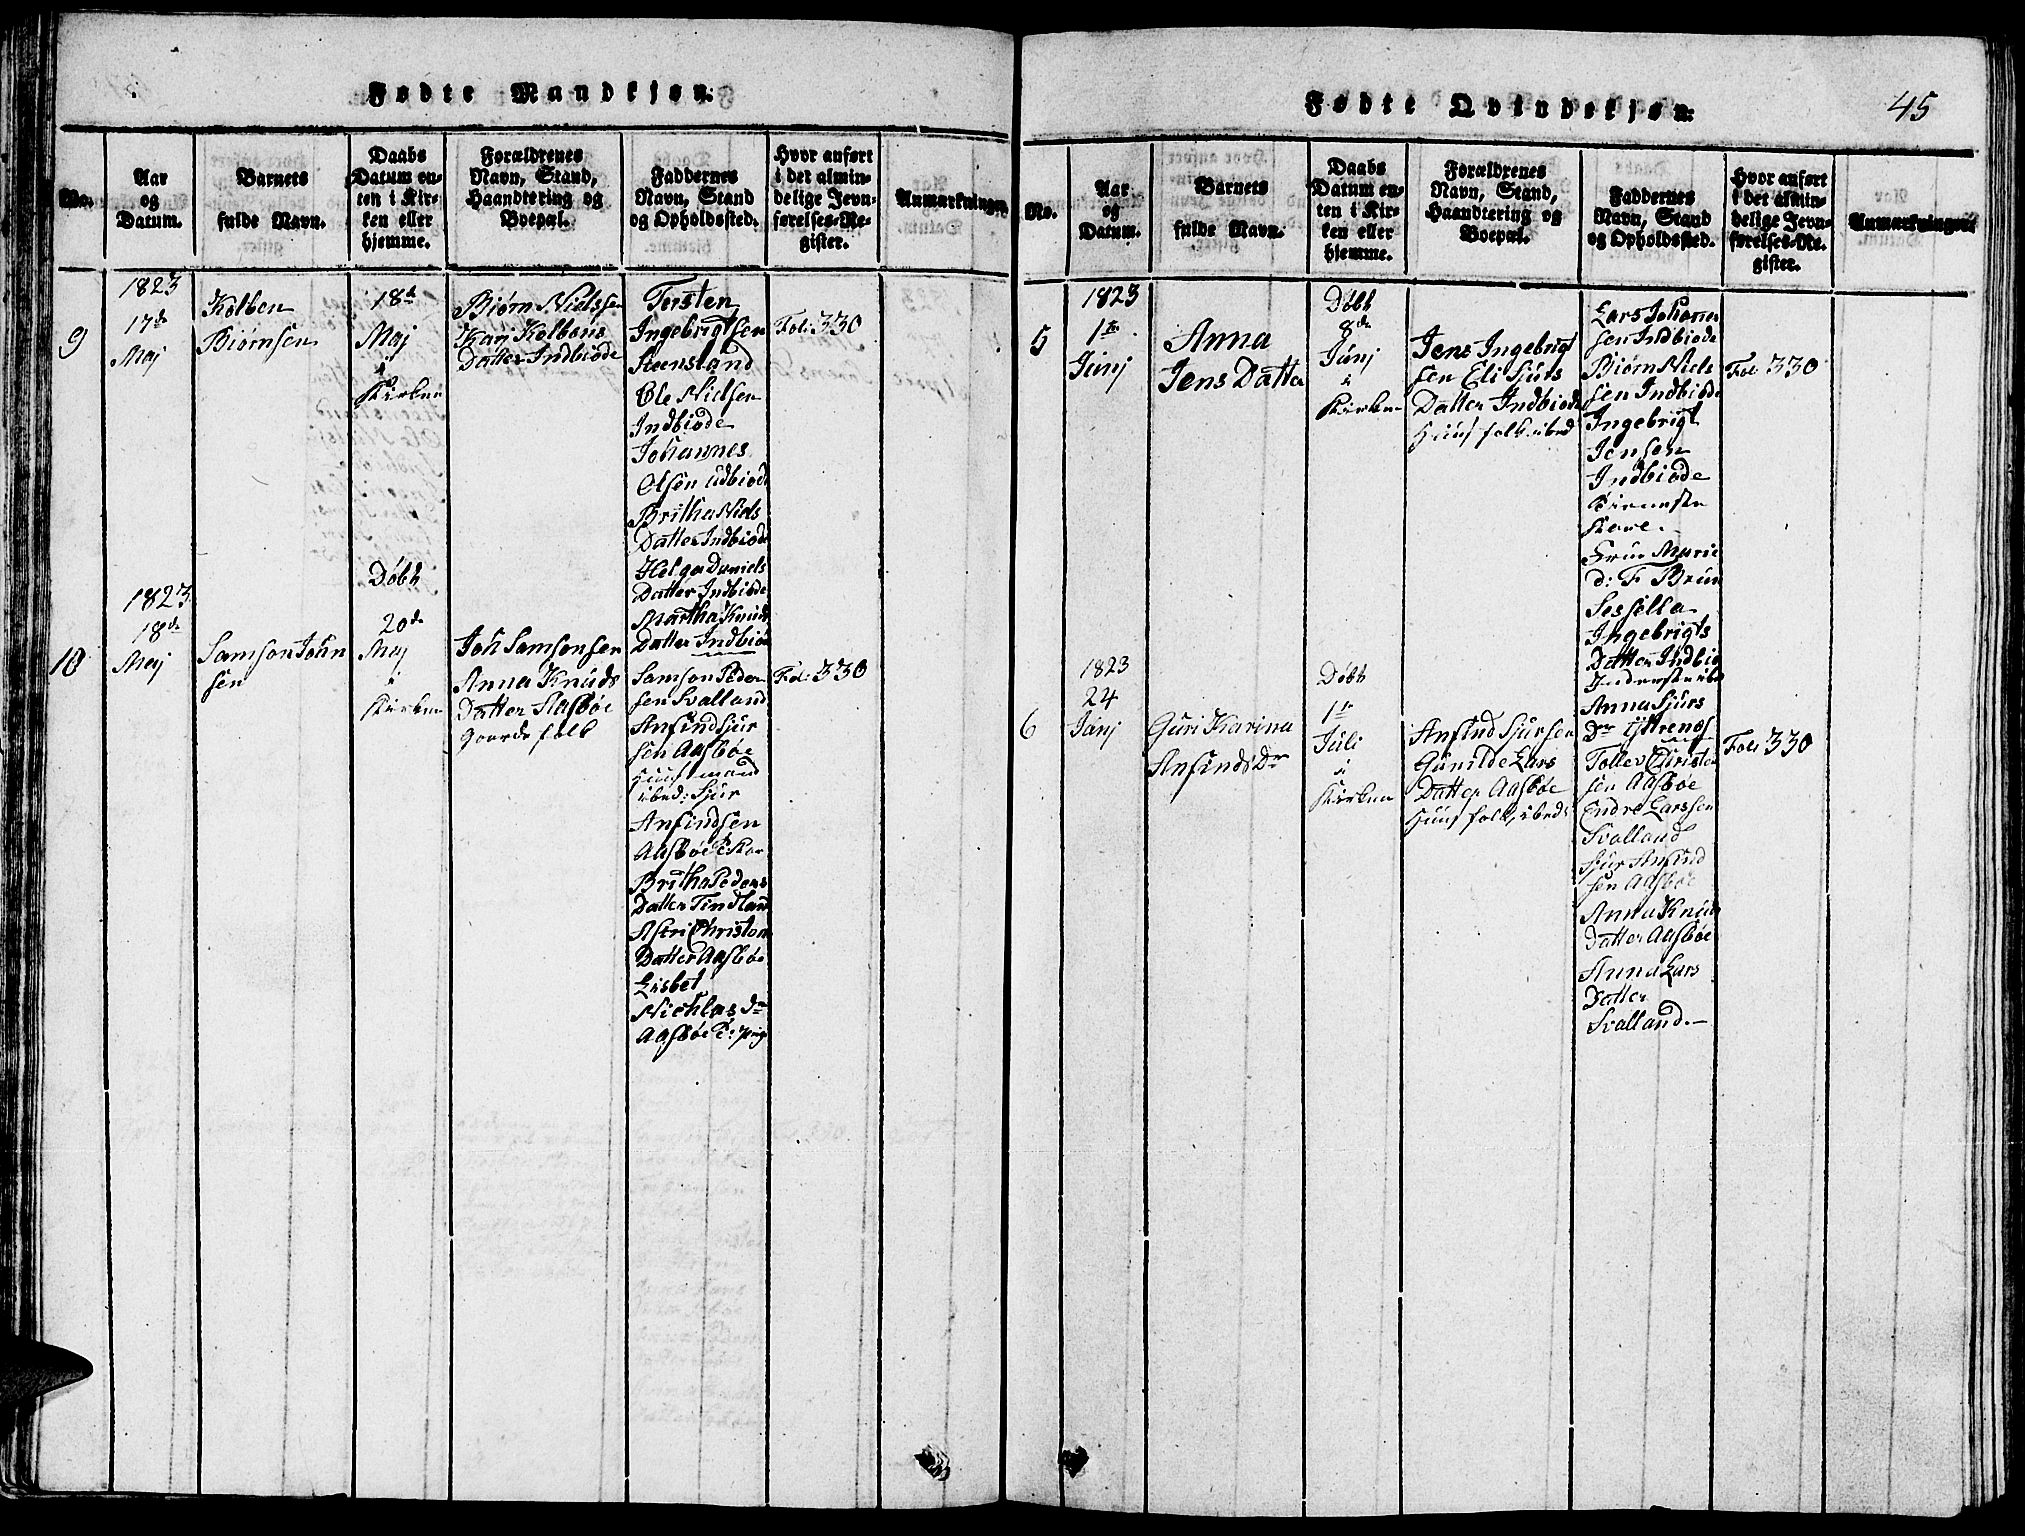 Fødte Mandkjøn.
No.
Aar
og
Datum.
Barnets
fulde Navn.
Daabs
Datum en-
ten i Kir-
ken eller
hjemme.
Forældrenes
Navn, Stand,
Haandtering og
Boepæl.
Faddernes
Navn, Stand
og Opholdssted.
Hvor anført
i det almin-
delige Jevn-
førelses-Re-
gister.
Anmærkninger.
9
1823
17de
Maj
Kolben
Biørnsen
18de
Maj
i
Kirken
Biørn Nielssen
Kari Kolbens
Datter Indbiode
Torsten
Ingebrigtsen
Steensland
Ole Nielsen
Indbiode
Johannes
Olsen Udbiode
Britha Niels
Datter Indbiode
Helga Daniels
Datter Indbiode
Martha Knuds
Datter Indbiode
Fol: 330
10
1823
18de
Maj
Samson John
sen
Døbt
20de
Maj
i
Kirken
Joh Samsonsen
Anna Knuds
Datter Aasbøe
Gaards folk
Samson Peder
sen Svalland
Anfind Sjur
sen Aasbøe
Huusmand
ibed: Sjur
Anfindsen
Aasbøe
Britha Peders
Datter Tindland
Astri Christens
Datter Aasbøe
Lisbet
Nichlas Dr
Aasbøe P: pige
Fol: 330
Fødte Qvindekjøn.
45
No.
Aar
og
Datum.
Barnets
fulde Navn.
Daabs
Datum en-
ten i Kir-
ken eller
hjemme.
Forældrenes
Navn, Stand,
Haandtering og
Boepæl.
Faddernes
Navn, Stand
og Opholdssted.
Hvor anført
i det almin-
delige Jevn-
førelses-Re-
gister.
Anmærkninger.
5
1823
1te
Junj
Anna
Jens Datter
Døbt
8de
Junj
i
Kirken
Jens Ingebrigt
sen Eli Sjurs
Datter Indbiode
Huusfolk ibed
Lars Johanne
sen Indbiode
Biørn Niels
sen Indbiode
Ingebrigt
Jensen
Indbiode
Frue Marie
d: F Brun
Sessella
Ingebrigts
Datter Indbio
Anna Sjurs
Dr Yttrenes
Fol: 330
6
1823
24
Junj
Guri Karina
Anfinds Dr
Døbt
1te
Juli
i
Kirken
Anfind Sjursen
Gunilde Lars
Datter Aasbøe
Huusfolk, ibed:
Tollev Christen
sen Aasbøe
Endre Larssen
Svalland
Sjur Anfind
sen Aasbøe
Anna Knuds
Datter Aasbøe
Anna Lars
Datter
Svalland.
Fol: 330